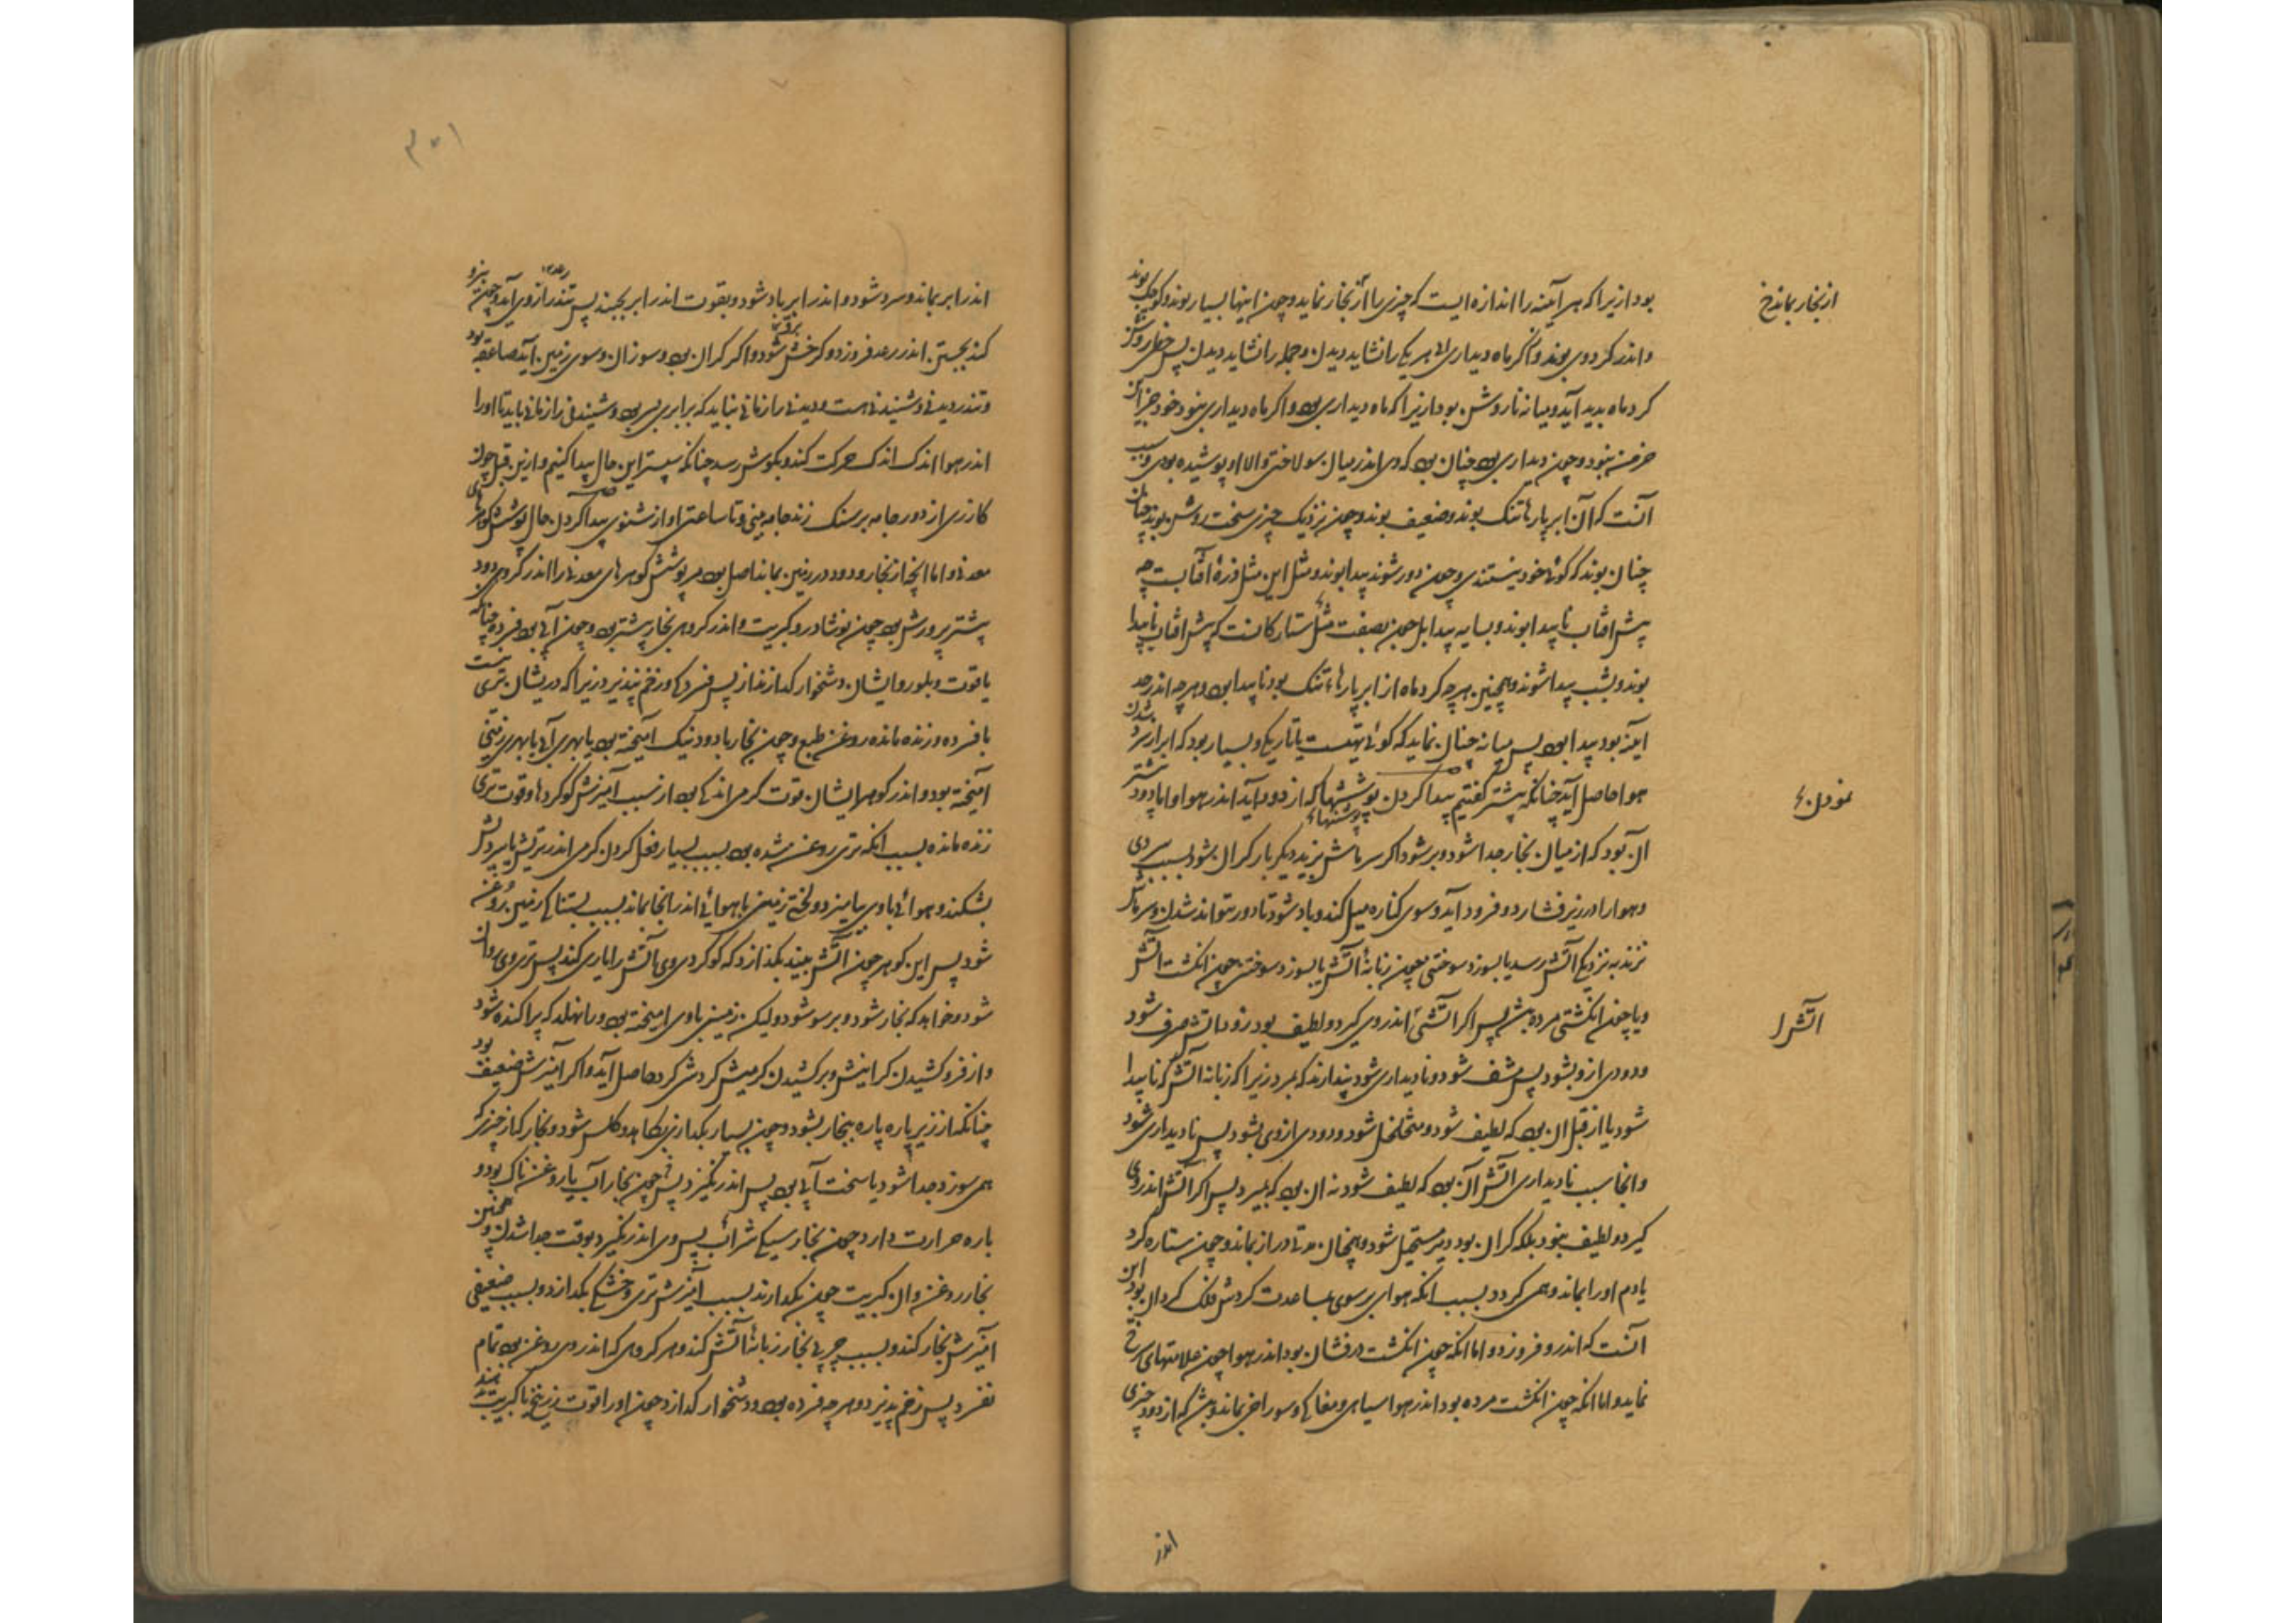 بود ازیرا که هر آینه را اندازه ایست که چیزی را از بخار نماید و چون اینها بسیار بوند و کوچک بوند
از بخار بماند خ
و اندر کرد وی بوند و آنکر ماه دیداری الا هر یکی را نشاید دیدن و جمله را نشاید دیدن پس خطی روشن
کرد ماه پدید آید و میانه ناروشن بود ازیرا که ماه دیداری بود و اکر ماه دیداری نبود خود جز این
خرمن نبود و چون دیداری بود چنان بود که وی اندر میان سولاختی والا او پوشیده بود و سبب
آنست که آن ابر پارها تنک بوند و ضعیف بوند و چون نزدیک چیزی سخت روشن بوند چنان
چنان بوند که کوئی خود نیستندی و چون دور شوند پیدا بوند و مثل این مثل ذرۀ آفتابست چه
پیش افتاب ناپیدا بوند و بسایه پیدا بل چون بصفت مثل ستارکانست که پیش افتاب ناپیدا
بوند و بشب پیدا شوند و همچنین هرچه کرد ماه از ابر پارهاء تنک بود ناپیدا بود و هرچه اندر حد
اینه بود پیدا بود پس میانه چنان نماید که کوئی تهیست یا تاریک و بسیار بود که ابر از سرد شدن
هوا حاصل آید چنانکه پیشتر کفتیم پیدا کردن پوششها که از دود آید اندر هوا و اما دود بیشتر
پوششهاء
ال بود که از میان بخار جدا شود و بر شود اکر سرماش بزند دیکر بار کران شود بسبب سردی
و هوا را در زیر فشارد و فرود آید و سوی کناره میل کند و باد شود تا دور تواند شدن و سرماش
نزند به نزدیکی آتش رسد یا بسوزد سوختنی چون زبانۀ آتش یا بسوزد سوختنی چون انکشت آتش
و یا چون انکشتی مرده بش پس اکر آتشی اندر وی کیرد و لطیف بود زود آتش صرف شود
اتش را
و دودی از و بشود پس مشف شود و نادیداری شود پندارند که بمرد زیرا که زبانه آتش که ناپیدا
شود یا از قبل ان بود که لطیف شود و متخلخل شود و دودی ازوی بشود پس نادیداری شود
و انجا سبب نادیداری آتش آن بود که لطیف شود نه ان بود که بمیرد پس اکر آتش اندر وی
کیرد و لطیف نبود بلکه کران بود دیر مستحیل شود و همچنان مدتی دراز بماند و چون ستاره کرد
یا دم اورا بماند و همی کردد بسبب انکه هوای بر سوی مساعدت کردش فلک کردان بود این
آنست که اندر و فروزد و اما انکه چون انکشت درفشان بود اندر هوا چون علامتهای سرخ
نماید و اما انکه چون انکشت مرده بود اندر هوا سیاهی و مغاکی و سوراخی بماند و بش که از دود چیزی
اندر
اندر ابر بماند و سرد شود و اندر ابر باد شود و بقوت اندر ابر بجنبد پس تندر ازوی آید و چون نیرو
رعد ۱۲
کند بجستن اندر رعد فروزد و کر خش شود و اکر کران بود و سوزان و سوی زمین آید صاعقه بود
و تندر دیدنی و شنیدنی هست و دیدنی را زمانی نباید که برابری بس بود و شنیدنی را زمانی باید تا اورا
اندر هوا اندک اندک حرکت کند و بکوش رسد چنانکه سپستر این حال پیدا کنیم و ازین قبل چون
کازری از دور جامه بر سنک زند جامه بینی و تا ساعتی اواز نشنوی پیدا کردن حال پوشش کوهرهای
معدنی و اما انچ از بخار و دود در زمین بماند اصل بود مر پوشش کوهرهای معدنی را اندر کروهی دود
پیشتر پرورش بود چون نوشادر و کبریت و اندر کروهی بخار پیشتر بود و چون آبی بود فسرده چنانکه
یاقوت و بلور و ایشان دشخوار کدازند از پس فسردکی و زخم نپذیرد زیرا که دریشان تری نیست
با فسرده و زنده مانده روغن طبع و چون بخار با دود نیک آمیخته بود یا بهری آبی با بهری زمینی
آمیخته بود و اندر کوهر ایشان قوت کرمی اندکی بود از سبب آمیزش کوکردها و قوت تری
زنده مانده بسبب انکه تری روغن شده بود بسبب بسیار فعل کردن کرمی اندر تریش یا سردش
بشکند و هوائی با وی بیامیزد و لختی زمینی با هوائی اندر انجا بماند بسبب بستناکی زمین روغن
شود پس این کوهر چون آتش بیند بکدازد که کوکردی وی آتش را یاری کند پس تری وی روان
شود و خواهد که بخار شود و بر سو شود و لیکن زمینی با وی امیخته بود و را نهلد که پراکنده شود
و از فرو کشیدن کرانیش و بر کشیدن کرمیش کردش کرد حاصل آید و اکر آمیزش ضعیف بود
چنانکه ارزیز پاره پاره ببخار بشود و چون بسیار بکدازی بکاهد و کلس شود و بخار که از چیزی
همی سوزد و جدا شود یا سخت آبی بود پس اندر نکیرد پس چون بخار آب یا روغن ناک بود و
باره حرارت دارد چون بخار سیکی شراب پس وی اندر نکیرد بوقت جدا شدن و همچنین
بخار روغن و ال کبریت چون بکدازند بسبب آمیزش تری و خشکی بکدازد و بسبب ضعیفی
امیزش بخار کند و بسبب چربی بخار زبانۀ آتش کند و هر کروهی که اندر وی روغن بود تمام
نفسرد پس زخم پذیرد و هرچه فسرده بود و دشخوار کدازد چون اورا قوت زرنیخ یا کبریت